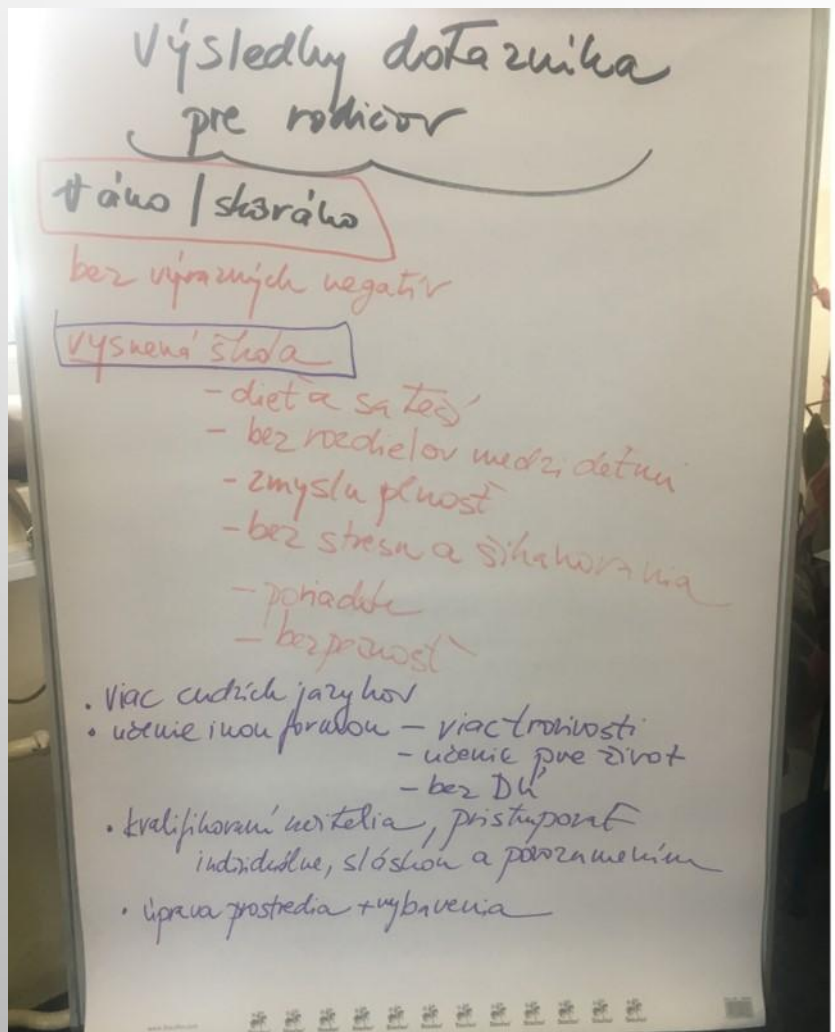 Výsledky dotazníka
pre rodičov
áno / skôr áno
bez výrazných negatív
vysnená škola
- dieťa sa teší
- bez rozdielov medzi deťmi
- zmysluplnosť
- bez stresu a šikanovania
- poriadok
- bezpečnosť
• viac cudzích jazykov
• učenie inou formou - viac tvorivosti
- učenie pre život
- bez DÚ
• kvalifikovaní učitelia, pristupovať
individuálne, s láskou a porozumením
• úprava prostredia + vybavenia